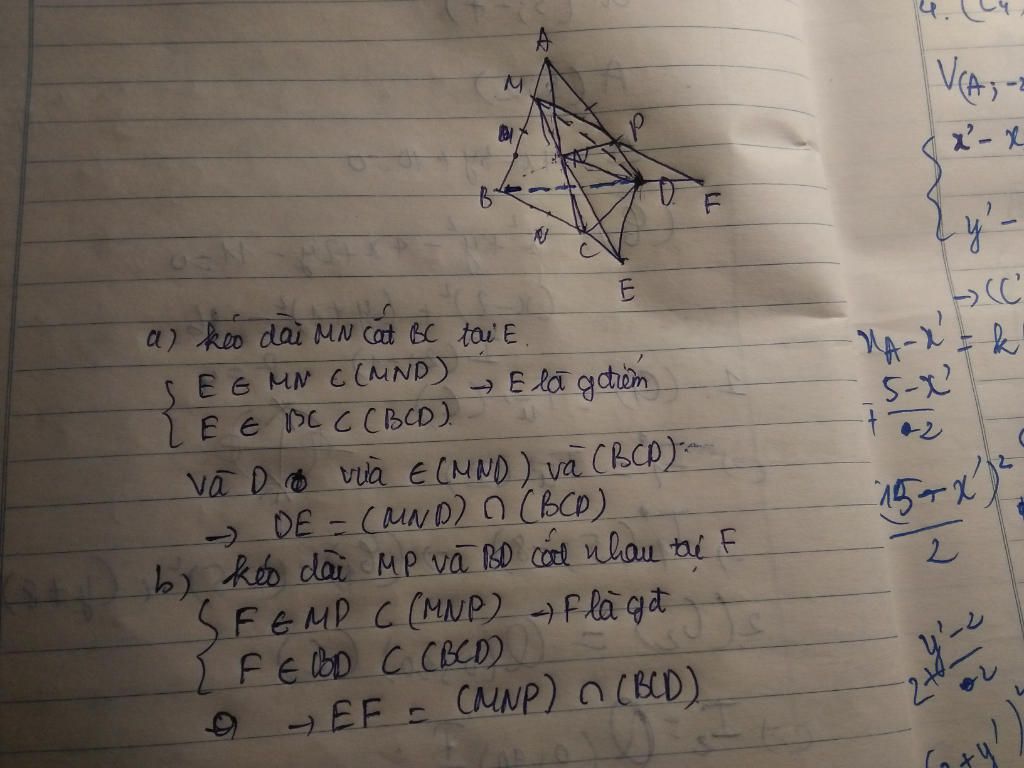 A
M
P
N
B
D
F
N
C
E
a) kéo dài MN cắt BC tại E.
E ∈ MN ⊂ (MND) → E là gđiểm
E ∈ BC ⊂ (BCD).
và D vừa ∈ (MND) và (BCD).
→ DE = (MND) ∩ (BCD)
b) kéo dài MP và BD cắt nhau tại F
F ∈ MP ⊂ (MNP) → F là gđ
F ∈ BD ⊂ (BCD)
→ EF = (MNP) ∩ (BCD)
V(A; -2
x' - x
y' -
→ (C'
x_A - x' = k
5 - x'
-2
(15 - x')²
2
y' - 2